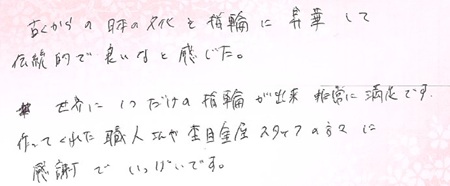 古くからの日本の文化を指輪に昇華して
伝統的で良いなと感じた。
世界に1つだけの指輪が出来 非常に満足です.
作ってくれた職人さんや杢目金屋スタッフの方々に
感謝でいっぱいです。